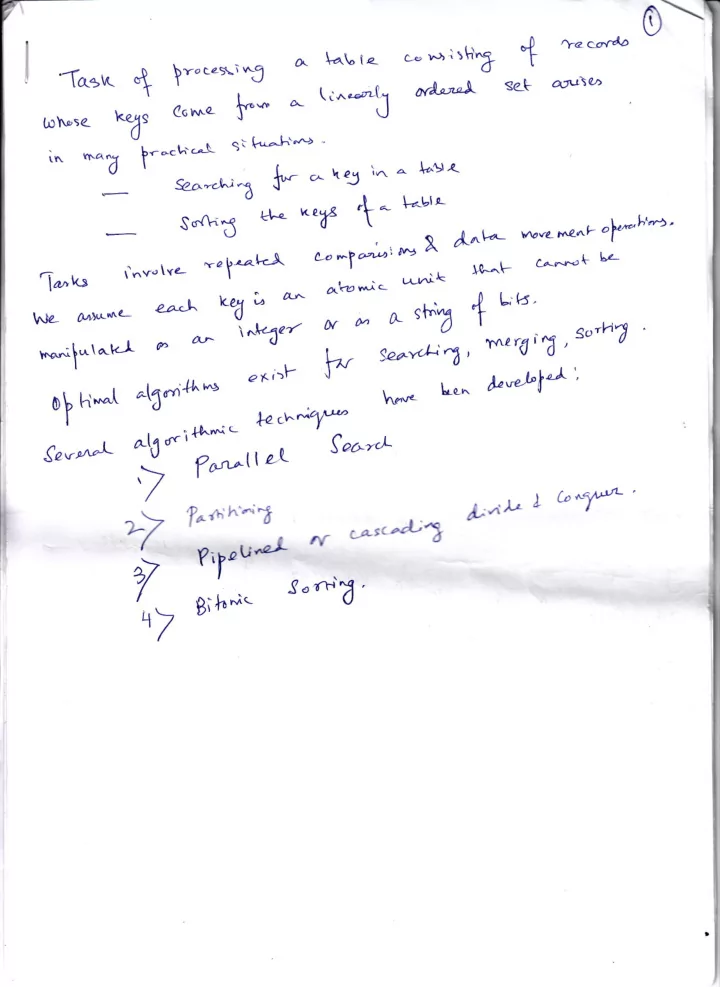 1
Task of processing a table consisting of records
whose keys come from a linearly ordered set arises
in many practical situations.
— Searching for a key in a table
— Sorting the keys of a table
Tasks involve repeated comparisions & data movement operations.
We assume each key is an atomic unit that cannot be
manipulated as an integer or as a string of bits.
Optimal algorithms exist for searching, merging, sorting.
Several algorithmic techniques have been developed:
1> Parallel Search
2> Partitioning
3> Pipelined or cascading divide & conquer.
4> Bitonic Sorting.